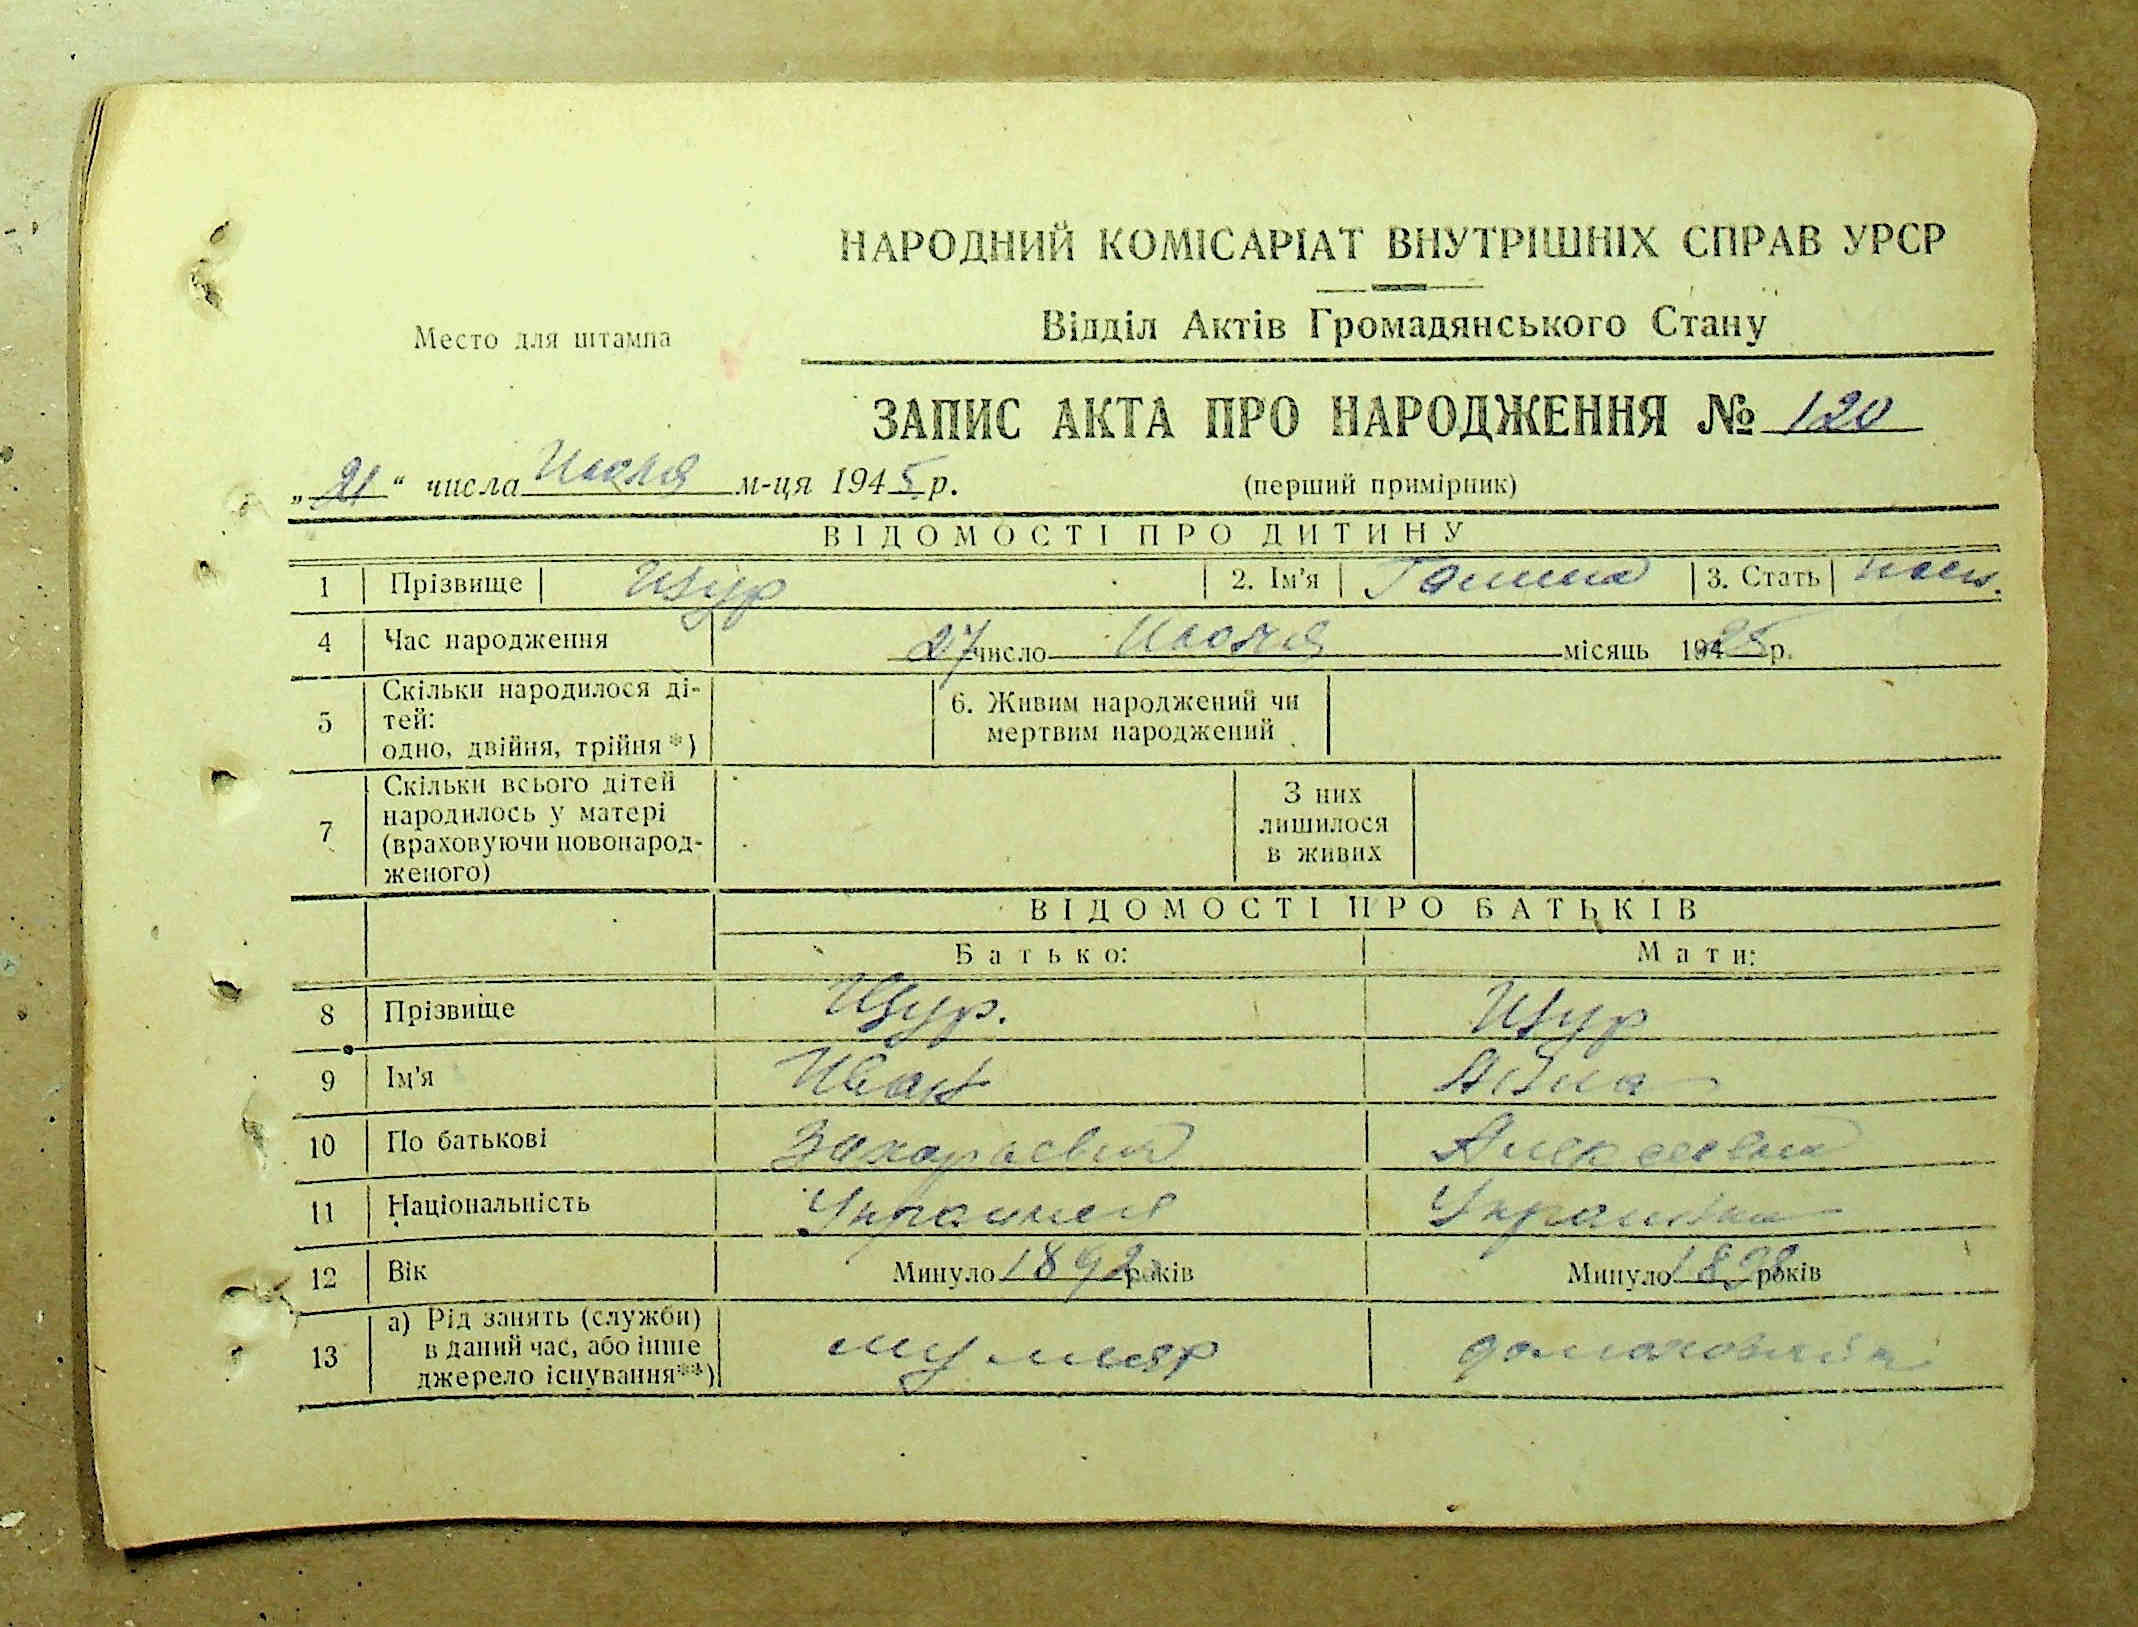 НАРОДНИЙ КОМІСАРІАТ ВНУТРІШНІХ СПРАВ УРСР
Відділ Актів Громадянського Стану
Место для штампа
ЗАПИС АКТА ПРО НАРОДЖЕННЯ № 120
„21“ числа Июля м-ця 1945 р.
(перший примірник)
ВІДОМОСТІ ПРО ДИТИНУ
1 Прізвище Щур 2. Ім'я Галина 3. Стать
4 Час народження 27 число Июля місяць 1925 р.
5 Скільки народилося ді-
тей:
одно, двійня, трійня *)
6. Живим народжений чи
мертвим народжений
7 Скільки всього дітей
народилось у матері
(враховуючи новонарод-
женого)
З них
лишилося
в живих
ВІДОМОСТІ ПРО БАТЬКІВ
Батько: Мати:
8 Прізвище Щур. Щур
9 Ім'я Иван Анна
10 По батькові Захарьевич Алексеевна
11 Національність Украинец Украинка
12 Вік Минуло 1892 років Минуло 1898 років
13 а) Рід занять (служби)
в даний час, або інше
джерело існування**)